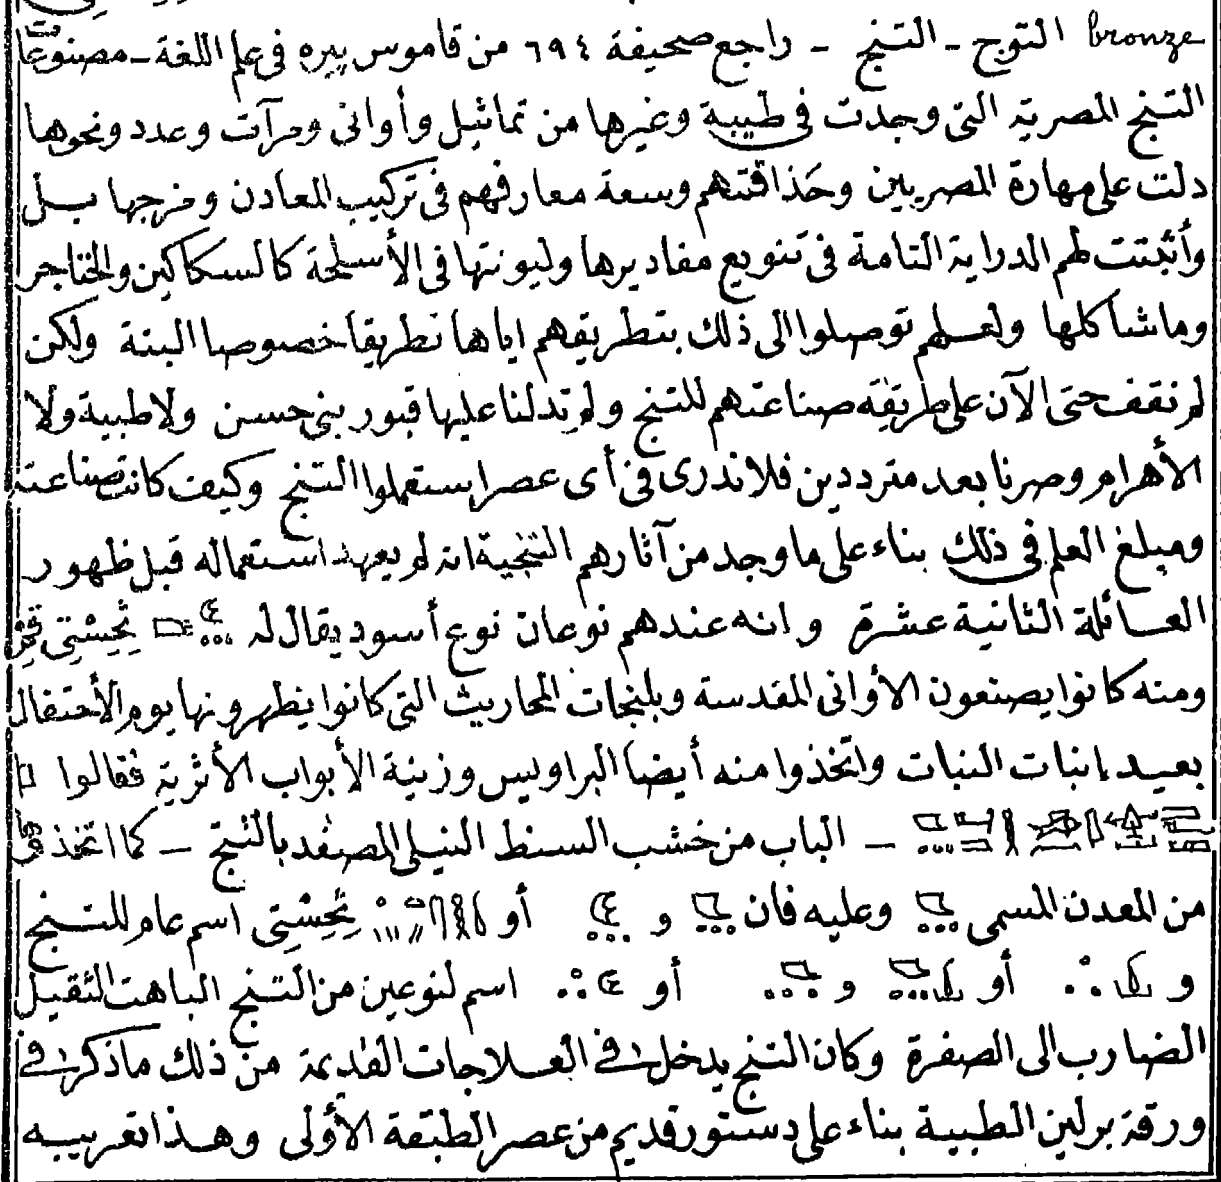 bronze التوج - التنج - راجع صحيفة ٦٩٤ من قاموس بيره في علم اللغة - مصنوعات
التنج المصرية التى وجدت في طيبة وغيرها من تماثيل وأوانى ومرآت وعدد ونحوها
دلت على مهارة المصريين وحَذاقتهم وسعة معارفهم في تركيب المعادن ومزجها بل
وأثبتت لهم الدراية التامة في تنويع مقاديرها وليونتها في الأسلحة كالسكاكين والخناجر
وماشاكلها ولعلهم توصلوا الى ذلك بتطريقهم اياها تطريقا خصوصيا البتة ولكن
لم نقف حتى الآن على طريقة صناعتهم للتنج ولم تدلنا عليها قبور بنى حسن ولا طيبة ولا
الأهرام وصرنا بعد مترددين فلا ندرى في أى عصر استعملوا التنج وكيف كانت صناعته
ومبلغ العلم في ذلك بناء على ماوجد من آثارهم التنجية انه لم يعهد استعماله قبل ظهور
العائلة الثانية عشرة وانه عندهم نوعان نوع أسود يقال له
ومنه كانوا يصنعون الأوانى المقدسة وبلنجات المحاريث التى كانوا يظهرونها يوم الأحتفال
بعيد انبات النبات واتخذوا منه أيضا البراويس وزينة الأبواب الأثرية فقالوا
- الباب من خشب السنط النيلى المصفد بالتنج - كما اتخذ
من المعدن المسمى وعليه فان و أو اسم عام للتنج
و أو و أو اسم لنوعين من التنج الباهت الثقيل
الضارب الى الصفرة وكان التنج يدخل في العلاجات القديمة من ذلك ماذكر في
ورقة برلين الطبية بناء على دستور قديم من عصر الطبقة الأولى وهذا تعريبه